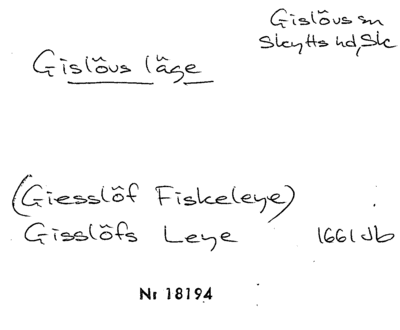 Gislövs sn
Skytts hd, Sk
Gislövs läge
(Giesslöf Fiskeleye)
Gisslöfs Leye 1661 Jb
Nr 18194